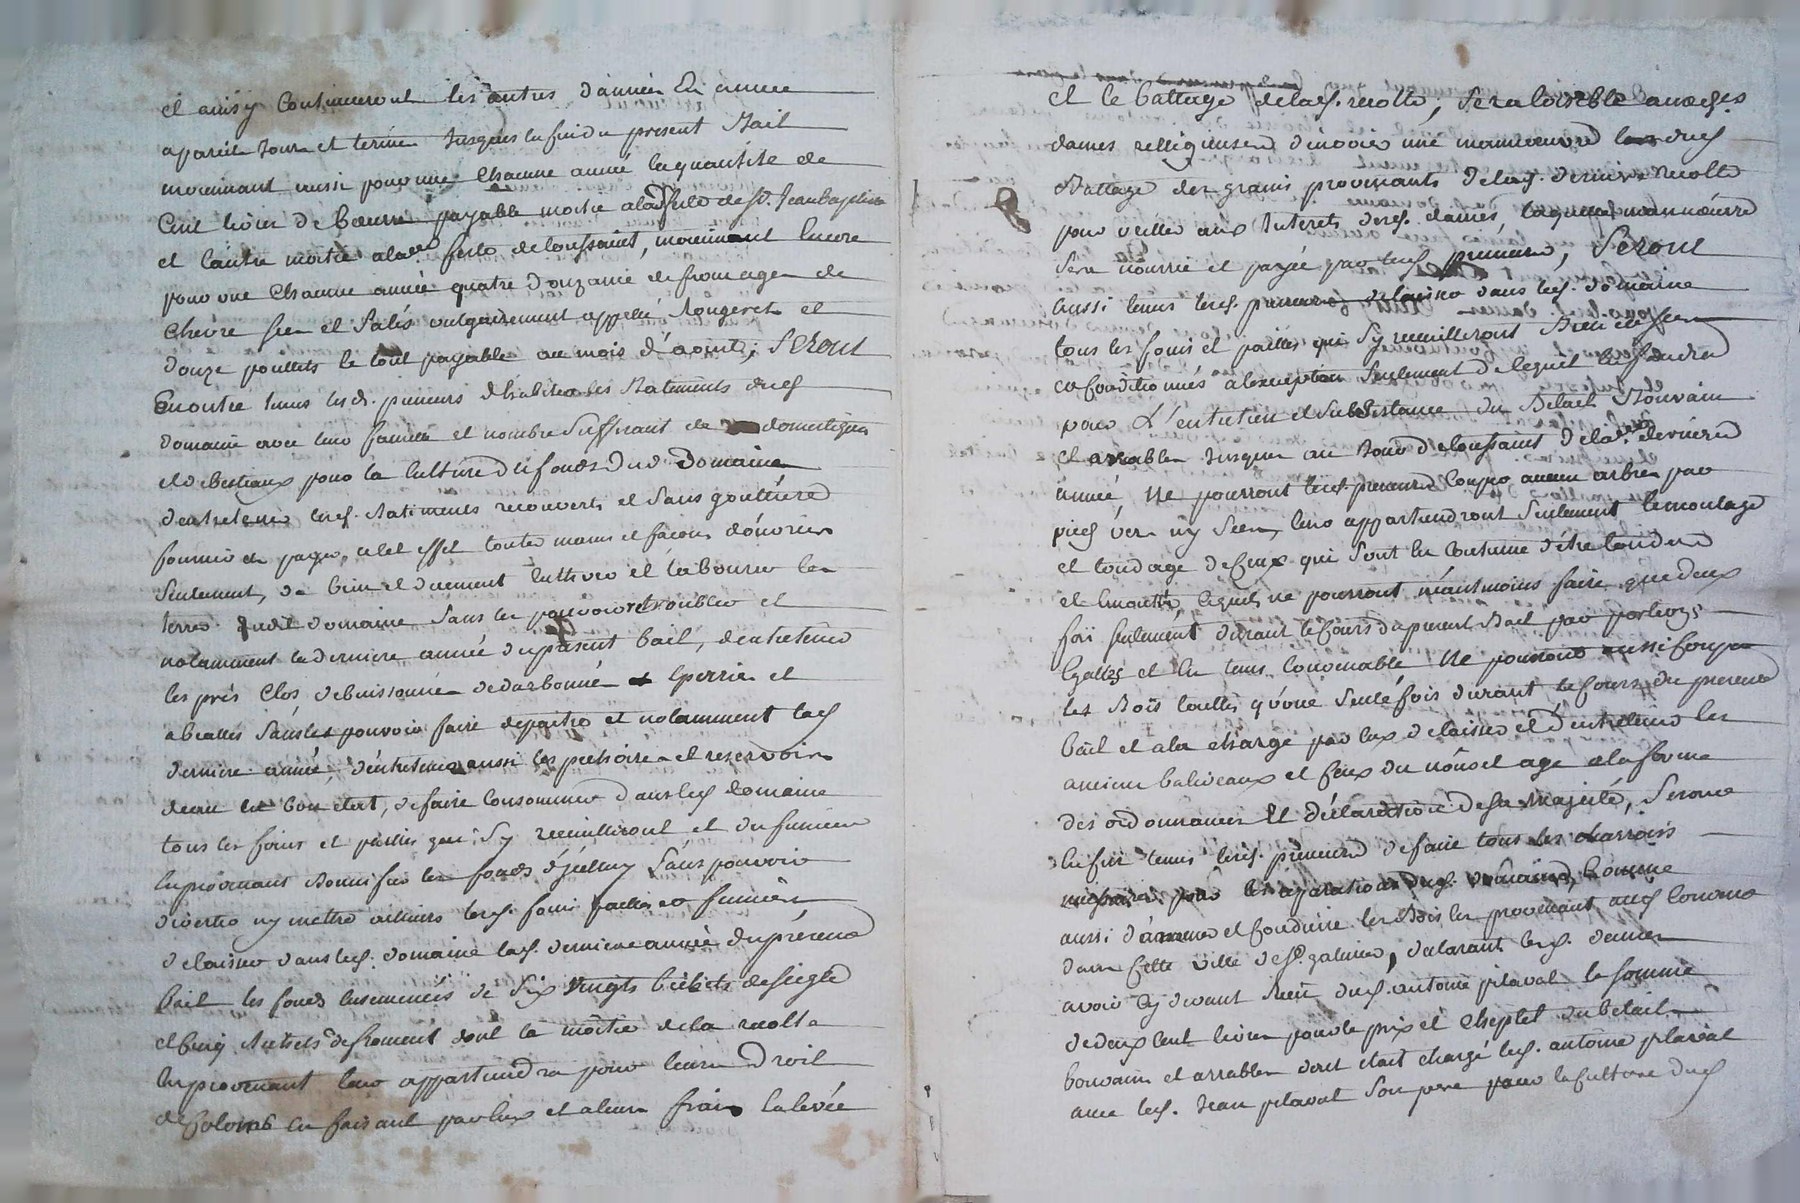 et ainsy Continueront les autres d'année En année
a pareil Jour et terme Jusques la fin du present Bail
moeinnant aussi pour une Chacune année la quantité de
Cent livres de Boeurre payable moitié a la feste de St. Jean baptiste
et l'autre moitié a la feste de toussaint, moeinnant Encore
pour une Chacune année quatre douzaine de fromages de
chevre sec et salés vulgairement appellé Rougeret et
douze poullets le tout payable au mois d'aoust; Seront
En outre tenus lesd. preneurs d'habiter les Batiments dud.
domaine avec leur famille et nombre suffisant de domestiques
et de bestiaux pour la Culture des fonds dud domaine
d'entretenir lesd. Batiments recouverts et sans gouttiere
fournir et payer a cet effet toutes mains et façons d'ouvriers
seulement, de bien et duement Cultiver et labourer les
terres dudit domaine sans les pouvoir troubler et
notamment la derniere année du present bail, d'entretenir
les prés Clos de buissonnée de darbonnée et
abeallés sans les pouvoir faire depaitre et notamment lad.
derniere année, d'entretenir aussi les pechoires et reservoirs
d'eau en bon etat, de faire Consommer dans led domaine
tous les foins et pailles qui s'y recuilliront et du fumier
En provenant Bonnifier les fonds d'jcelluy sans pouvoir
divertir ny mettre ailleurs lesd. foins pailles et fumiers
de laisser dans led. domaine lad. derniere année du present
bail les fonds Ensemencés de six vingts bichets de seigle
et Cinq bichets de froment dont la moitié de la recolte
En provenant leur appartiendra pour leurs droit
de Colons En faisant par Eux et a leurs frais la levée
et le battage de lad. recolte, Sera loisible auxd.es
dames relligieuses d'envoier une manoeuvre dud
Battage des grains provenants de lad. derniere recolte
pour veiller aux Interets desd. dames, laquelle manoeuvre
sera nourrie et payée par lesd. preneurs, Seront
aussi tenus lesd. preneurs de laisser dans led. domaine
tous les foins et pailles qui s'y recuilliront Bien
conditionnés a l'exeption seulement de lequel
pour L'entretien et subsistance du Betail Bouvain
et arrables Jusques au Jour de toussaint de lad. derniere
année, Ne pourront lesd. preneurs Couper aucun arbres par
pied vers ny secs, leur appartiendront seulement l'emontage
et tondage de Ceux qui sont En Coutume d'être tondus
et Emontés, lesquels ne pourront néantmoins faire que deux
fois seulement durant le Cours du present Bail par portions
Egalles et En tems Convenable Ne pourront aussi Couper
les Bois tailles qu'une seule fois durant le Cours du present
bail et a la charge par Eux de laisser et d'entretenir les
anciens baliveaux et Ceux du nouvel age a la forme
des ordonnances Et déclaration de sa Majesté, Seront
Enfin tenus lesd. preneurs de faire tous les charrois
necessaires pour les reparations dud. domaine, Comme
aussi d'amener et Conduire les Bois En provenant aud Couvent
dans Cette ville de St. galmier, declarants lesd. dames
avoir Cy devant Receu dud. antoine pitaval la somme
de deux Cent livres pour le prix et Cheptel du betail
bouvain et arrables dont etait chargé led. antoine pitaval
avec led. Jean pitaval son pere pour la Culture dud